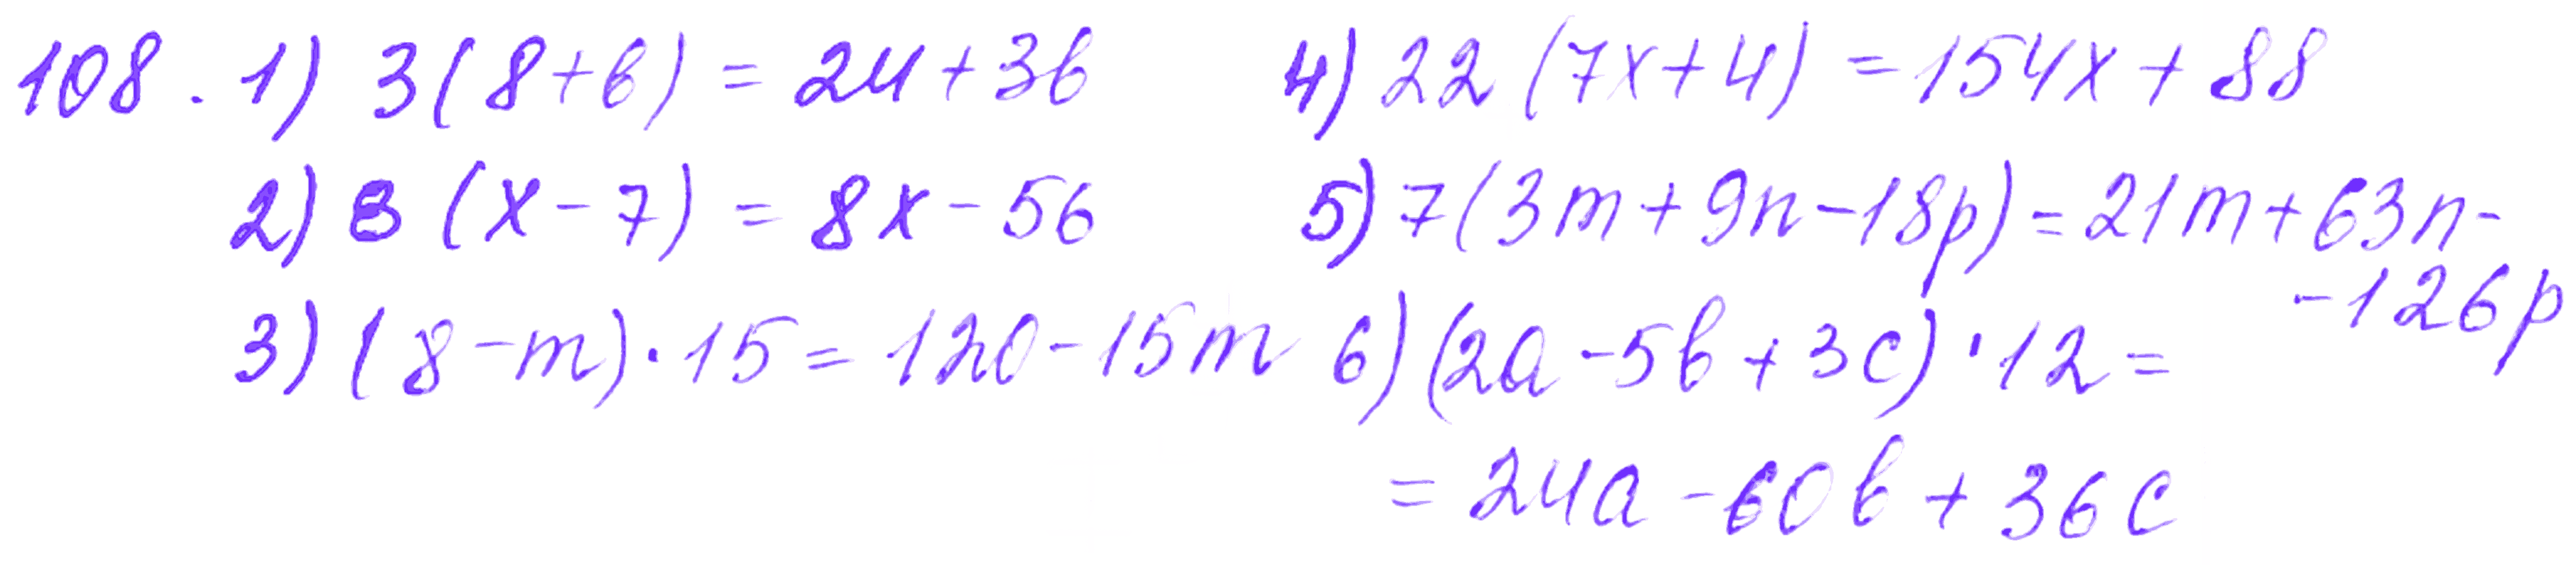 108. 1) 3(8+b) = 24+3b
2) 8(x-7) = 8x-56
3) (8-m)·15 = 120-15m
4) 22(7x+4) = 154x+88
5) 7(3m+9n-18p) = 21m+63n-
-126p
6) (2a-5b+3c)·12 =
= 24a-60b+36c